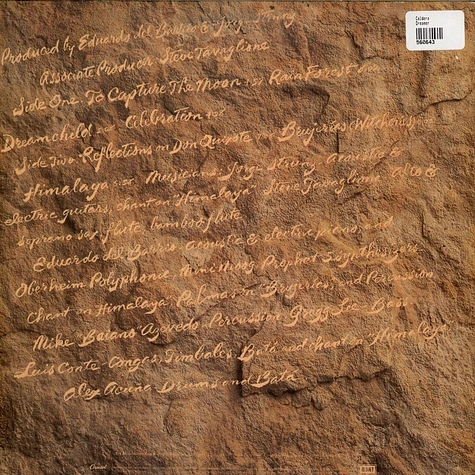 Caldera
Dreamer
560643
Produced by Eduardo del Barrio & Jorge Strunz
Associate Producer Steve Tavaglione
Side One: To Capture The Moon Rain Forest
Dreamchild Celebration
Side Two: Reflections on Don Quixote Brujerias (Witchcraft)
Himalaya Musicians: Jorge Strunz-Acoustic &
electric guitars, chant on "Himalaya" Steve Tavaglione-Alto &
soprano sax, flute, bamboo flute
Eduardo del Barrio-Acoustic & electric piano, and
Oberheim Polyphonic, Mini Moog, Prophet 5 synthesizers,
chant on Himalaya, Palmas on "Brujerias," and Percussion
Mike "Baiano" Azevedo-Percussion Gregg Lee-Bass
Luis Conte-Congas, Timbales, Bata and chant on "Himalaya"
Alex Acuña-Drums and Bata
Capitol